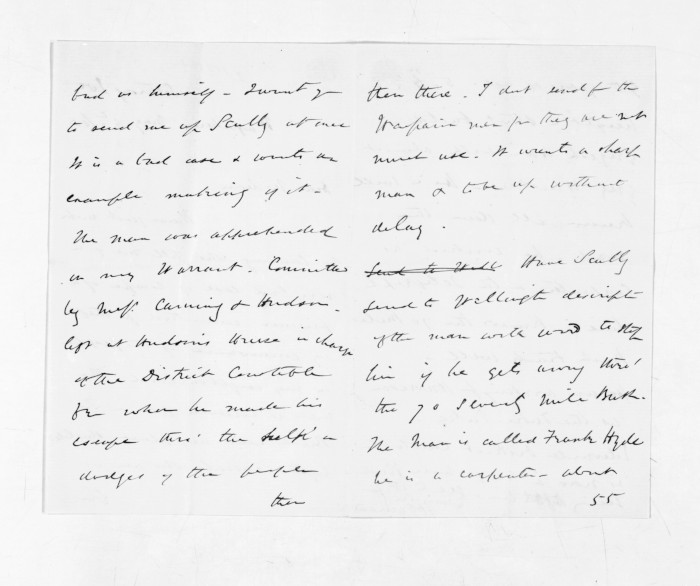 bad as himself - I want you
to send me up Scully at once
It is a bad case & wants an
example making of it -
The man was apprehended
on my Warrant. Committed
by Messrs Canning & Hudson -
left at Hudson's House in charge
of the District Constable
from whom he made his
escape thro' the help &
dodges of the people
then
then there. I dont send for the
Waipawa men for they are not
much use. It wants a sharp
man & to be up without
delay.
Send to Well Have Scully
send to Wellington descript
of the man with word to stop
him if he gets away thro'
the 70 Seventy Mile Bush.
The Man is called Frank Hyde
he is a carpenter - about
55